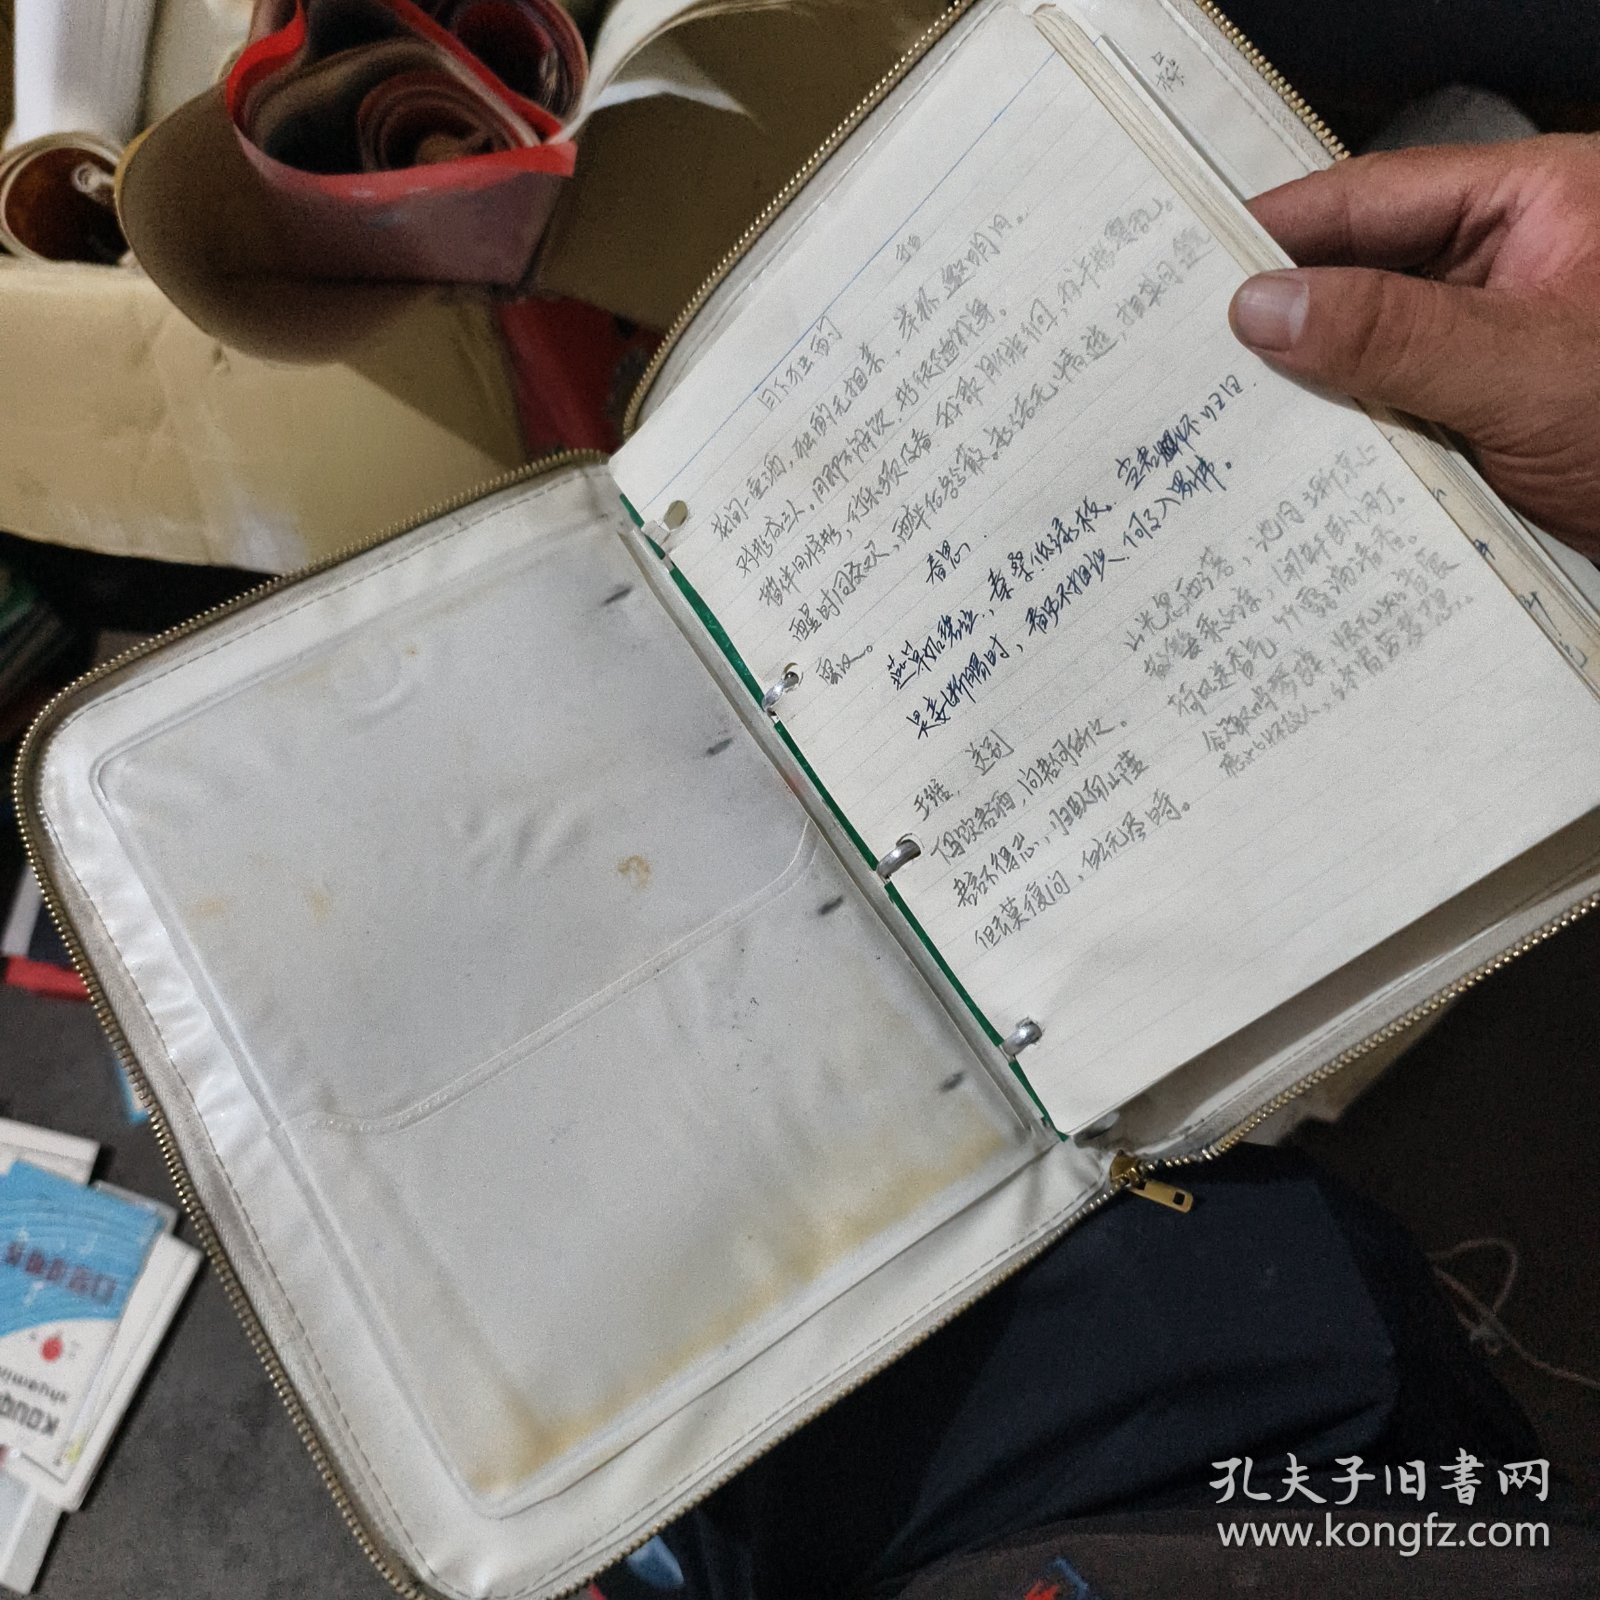 月下独酌
李白
花间一壶酒，独酌无相亲，举杯邀明月。
对影成三人。月既不解饮，影徒随我身。
暂伴月将影，行乐须及春 我歌月徘徊，我舞影零乱。
醒时同交欢，醉后各分散。永结无情遊，相期邈
云汉。
春思
燕草如碧丝，秦桑低绿枝。当君怀归日
是妾断肠时，春风不相识，何事入罗帏。
王维，送别
下马饮君酒，问君何所之。
君言不得意，归卧南山陲
但去莫復问，白云无尽时。
山光忽西落，池月渐东上
散发乘夕凉，开轩卧闲敞。
荷风送香气 竹露滴清香。
欲取鸣琴弹 恨无知音赏
感此怀故人，
孔夫子旧書网
www.kongfz.com